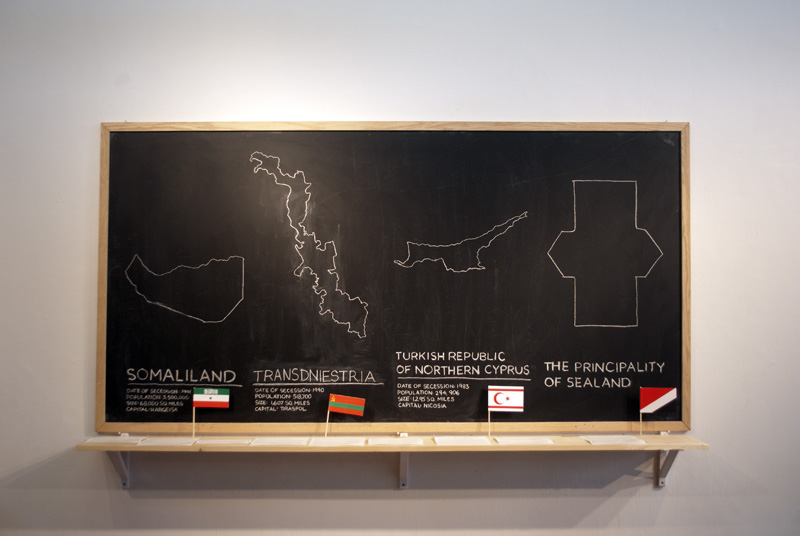 SOMALILAND
DATE OF SECESSION: 1991
POPULATION: 3,500,000
SIZE: 68,000 SQ. MILES
CAPITAL: HARGEYSA
TRANSDNIESTRIA
DATE OF SECESSION: 1990
POPULATION:
SIZE: 1,607 SQ. MILES
CAPITAL: TIRASPOL
TURKISH REPUBLIC
OF NORTHERN CYPRUS
DATE OF SECESSION: 1983
POPULATION: 294,906
SIZE: 1,295 SQ. MILES
CAPITAL: NICOSIA
THE PRINCIPALITY
OF SEALAND